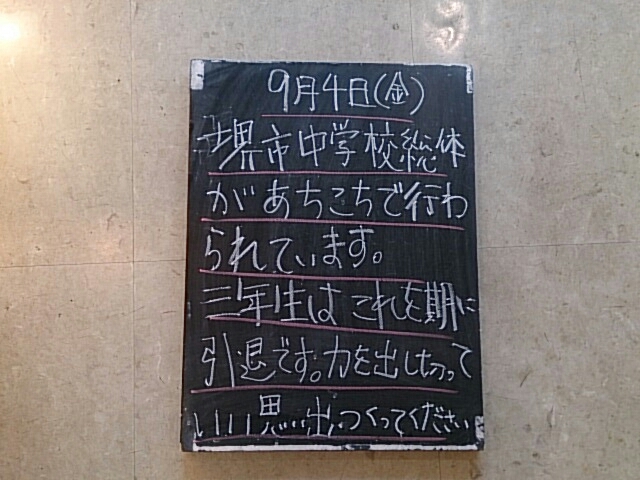 9月4日(金)
堺市中学校総体
があちこちで行わ
られています。
三年生はこれを期に
引退です。力を出しきって
いい思い出つくってください